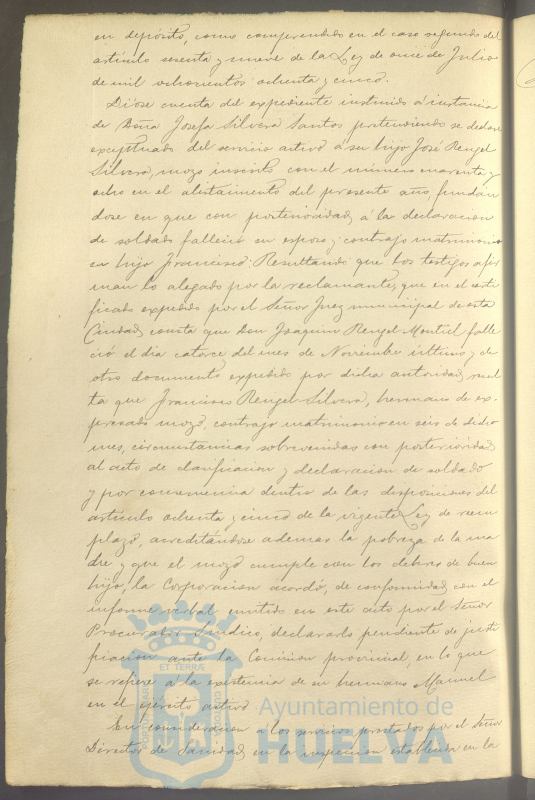 en depósito, como comprendido en el caso segundo del
artículo sesenta y nueve de la Ley de once de Julio
de mil ochocientos ochenta y cinco.
Dióse cuenta del expediente instruido á instancia
de Doña Josefa Silvera Santos pretendiendo se declare
exceptuado del servicio activo á su hijo José Rengel
Silvera, mozo inscrito con el número cuarenta y
ocho en el alistamiento del presente año, fundan
dose en que con posterioridad á la declaracion
de soldado falleció su esposo y contrajo matrimonio
su hijo Francisco: Resultando que los testigos afir
man lo alegado por la reclamante, que en el certi
ficado expedido por el Señor Juez municipal de esta
Ciudad, consta que Don Joaquin Rengel Montiel falle
ció el dia catorce del mes de Noviembre último y de
otro documento expedido por dicha autoridad, resul
ta que Francisco Rengel Silvera, hermano de ex-
presado mozo, contrajo matrimonio en seis de dicho
mes, circunstancias sobrevenidas con posterioridad
al acto de clasificacion y declaracion de soldado
y por consecuencia dentro de las disposiciones del
artículo ochenta y cinco de la vigente Ley de reem
plazo, acreditándose ademas la pobreza de la ma
dre y que el mozo cumple con los deberes de buen
hijo, la Corporacion acordó, de conformidad con el
informe verbal emitido en este acto por el Señor
Procurador Síndico, declararlo pendiente de justi
ficacion ante la Comision provincial, en lo que
se refiere á la existencia de su hermano Manuel
en el ejército activo.
En consideracion á los servicios prestados por el Señor
Director de Sanidad en la inspeccion establecida en la
Ayuntamiento de
HUELVA